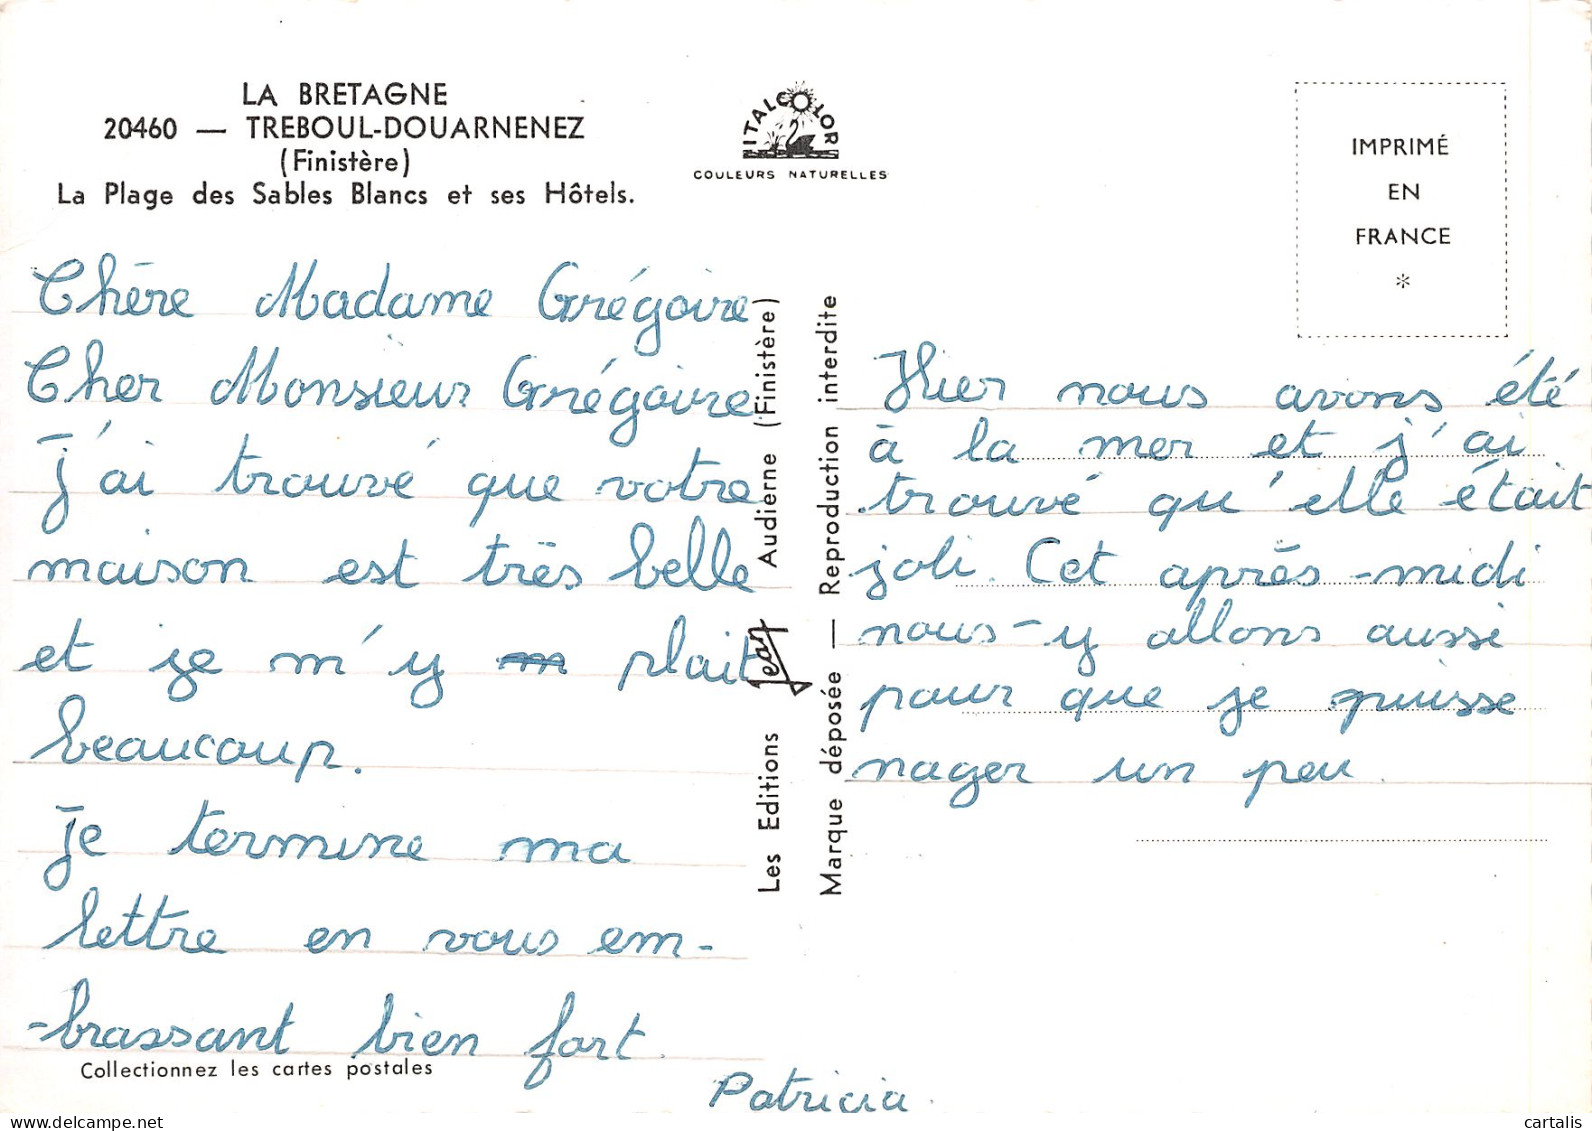 LA BRETAGNE
20460 — TREBOUL-DOUARNENEZ
(Finistère)
La Plage des Sables Blancs et ses Hôtels.
ITALCOLOR
COULEURS NATURELLES
IMPRIMÉ
EN
FRANCE
*
Chère Madame Grégoire
Cher Monsieur Grégoire
J'ai trouvé que votre
maison est très belle
et je m'y m plait
beaucoup.
Je termine ma
lettre en vous em-
-brassant bien fort.
Patricia.
Collectionnez les cartes postales
Les Editions Jean Audierne (Finistère)
Marque déposée — Reproduction interdite
Hier nous avons été
à la mer et j'ai
trouvé qu'elle était
joli. Cet après-midi
nous-y allons aussi
pour que je puisse
nager un peu.
www.delcampe.net
cartalis